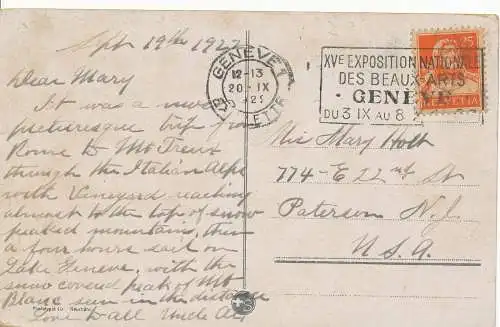 Sept 19th 1922
Dear Mary
It was a most
picturesque trip from
Rome to Mt Treux
through the Italian Alps
with Vineyard reaching
almost to the top of snow
peaked mountains, then
a four hours sail on
Lake Geneve, with the
snow covered peak of Mt
Blanc seen in the distance
Love to all Uncle
GENÈVE 1
12-13
20 IX
LETTR
XVE EXPOSITION NATIONALE
DES BEAUX-ARTS
GENÈVE
DU 3 IX AU 8
25
HELVETIA
Mis Mary Holt
774-E 22nd St
Paterson N.J.
U.S.A.